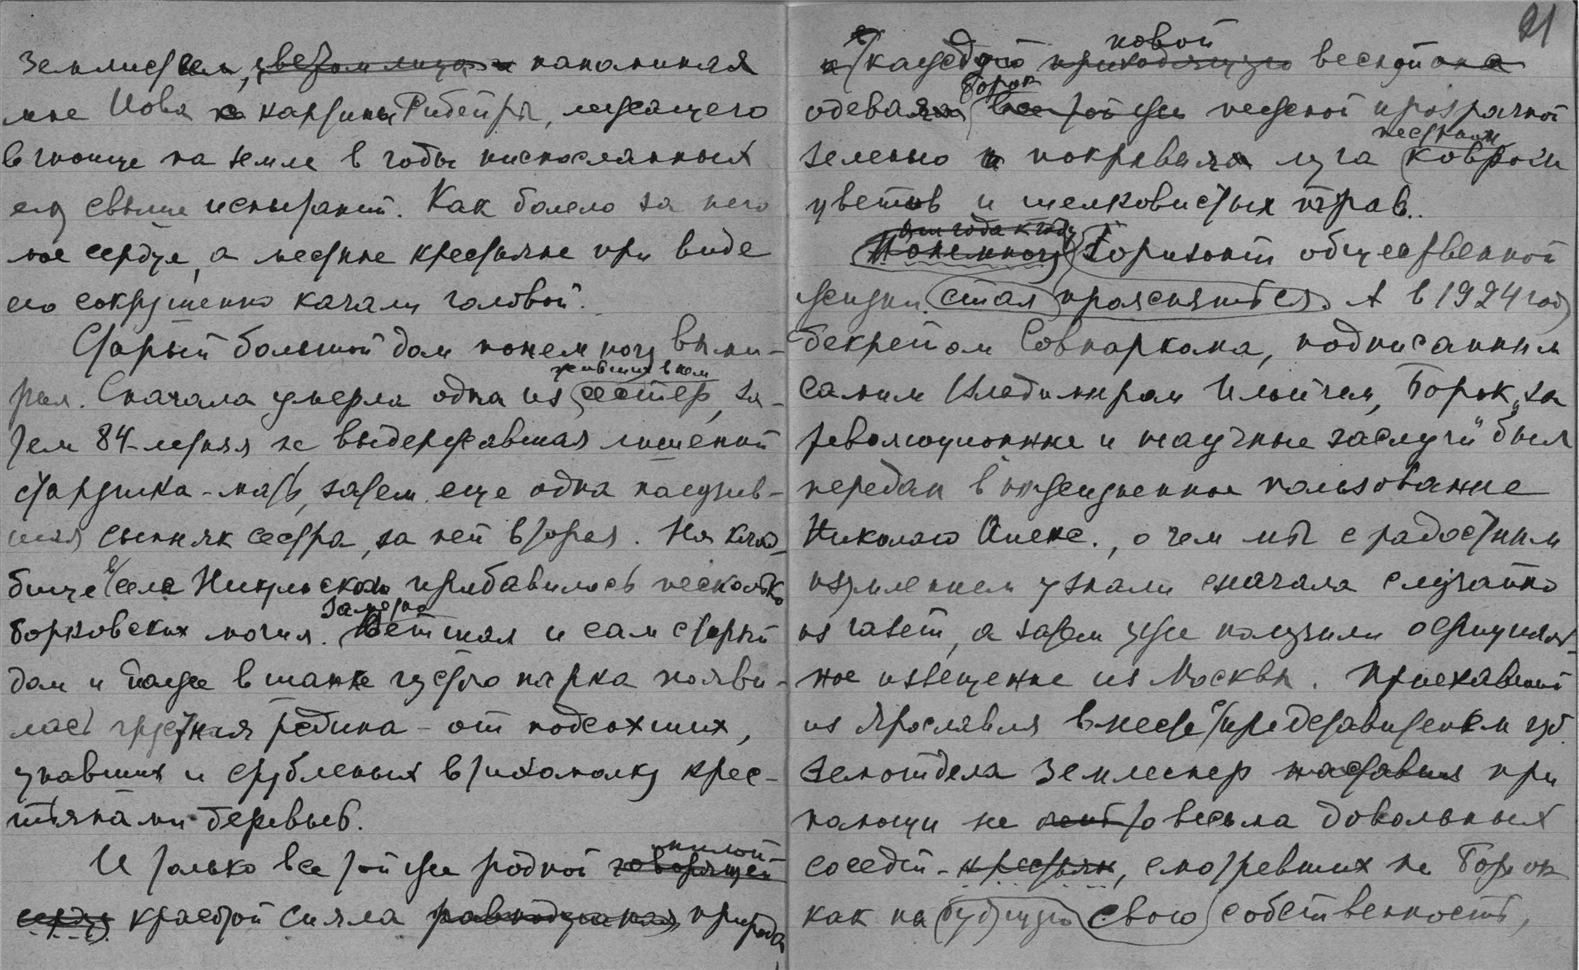 землистым, цветом лица и напоминая
мне Иова с картины Рибейры, лежащего
в гноище на земле в годы ниспосланных
ему свыше испытаний. Как болело за него
мое сердце, а местные крестьяне при виде
его сокрушенно качали головой.
Старый большой дом понемногу выми-
живших в нем
рал. Сначала умерла одна из сестер, за-
тем 84-летняя не выдержавшая лишений
старушка-мать, затем еще одна получив-
шая сыпняк сестра, за ней вторая. На клад-
бище села Никульском прибавилось несколько
Заметно
борковских могил. Ветшал и сам старый
дом и даже в шапке густого парка появи-
лась грустная редина - от подсохших,
упавших и срубленных втихомолку крес-
тьянами деревьев.
милой
И только все той же родной говорящей
сердцу красотой сияла равнодушная природа
21
новой
и каждую приходящую весной она
Борок
одевала все той же нежной прозрачной
пестрым
зеленью и покрывала луга ковром
цветов и шелковистых трав..
от года к году
Понемногу Горизонт общественной
жизни стал проясняться. А в 1924 году
декретом Совнаркома, подписанным
самим Владимиром Ильичем, Борок „за
революционные и научные заслуги" был
передан в пожизненное пользование
Николаю Алекс., о чем мы с радостным
изумлением узнали сначала случайно
из газет, а затем уже получили официаль-
ное извещение из Москвы. Приехавший
из Ярославля вместе с представителем губ.
земотдела землемер при
помощи не весьма довольных
соседей - крестьян, смотревших на Борок
как на будущую свою собственность,